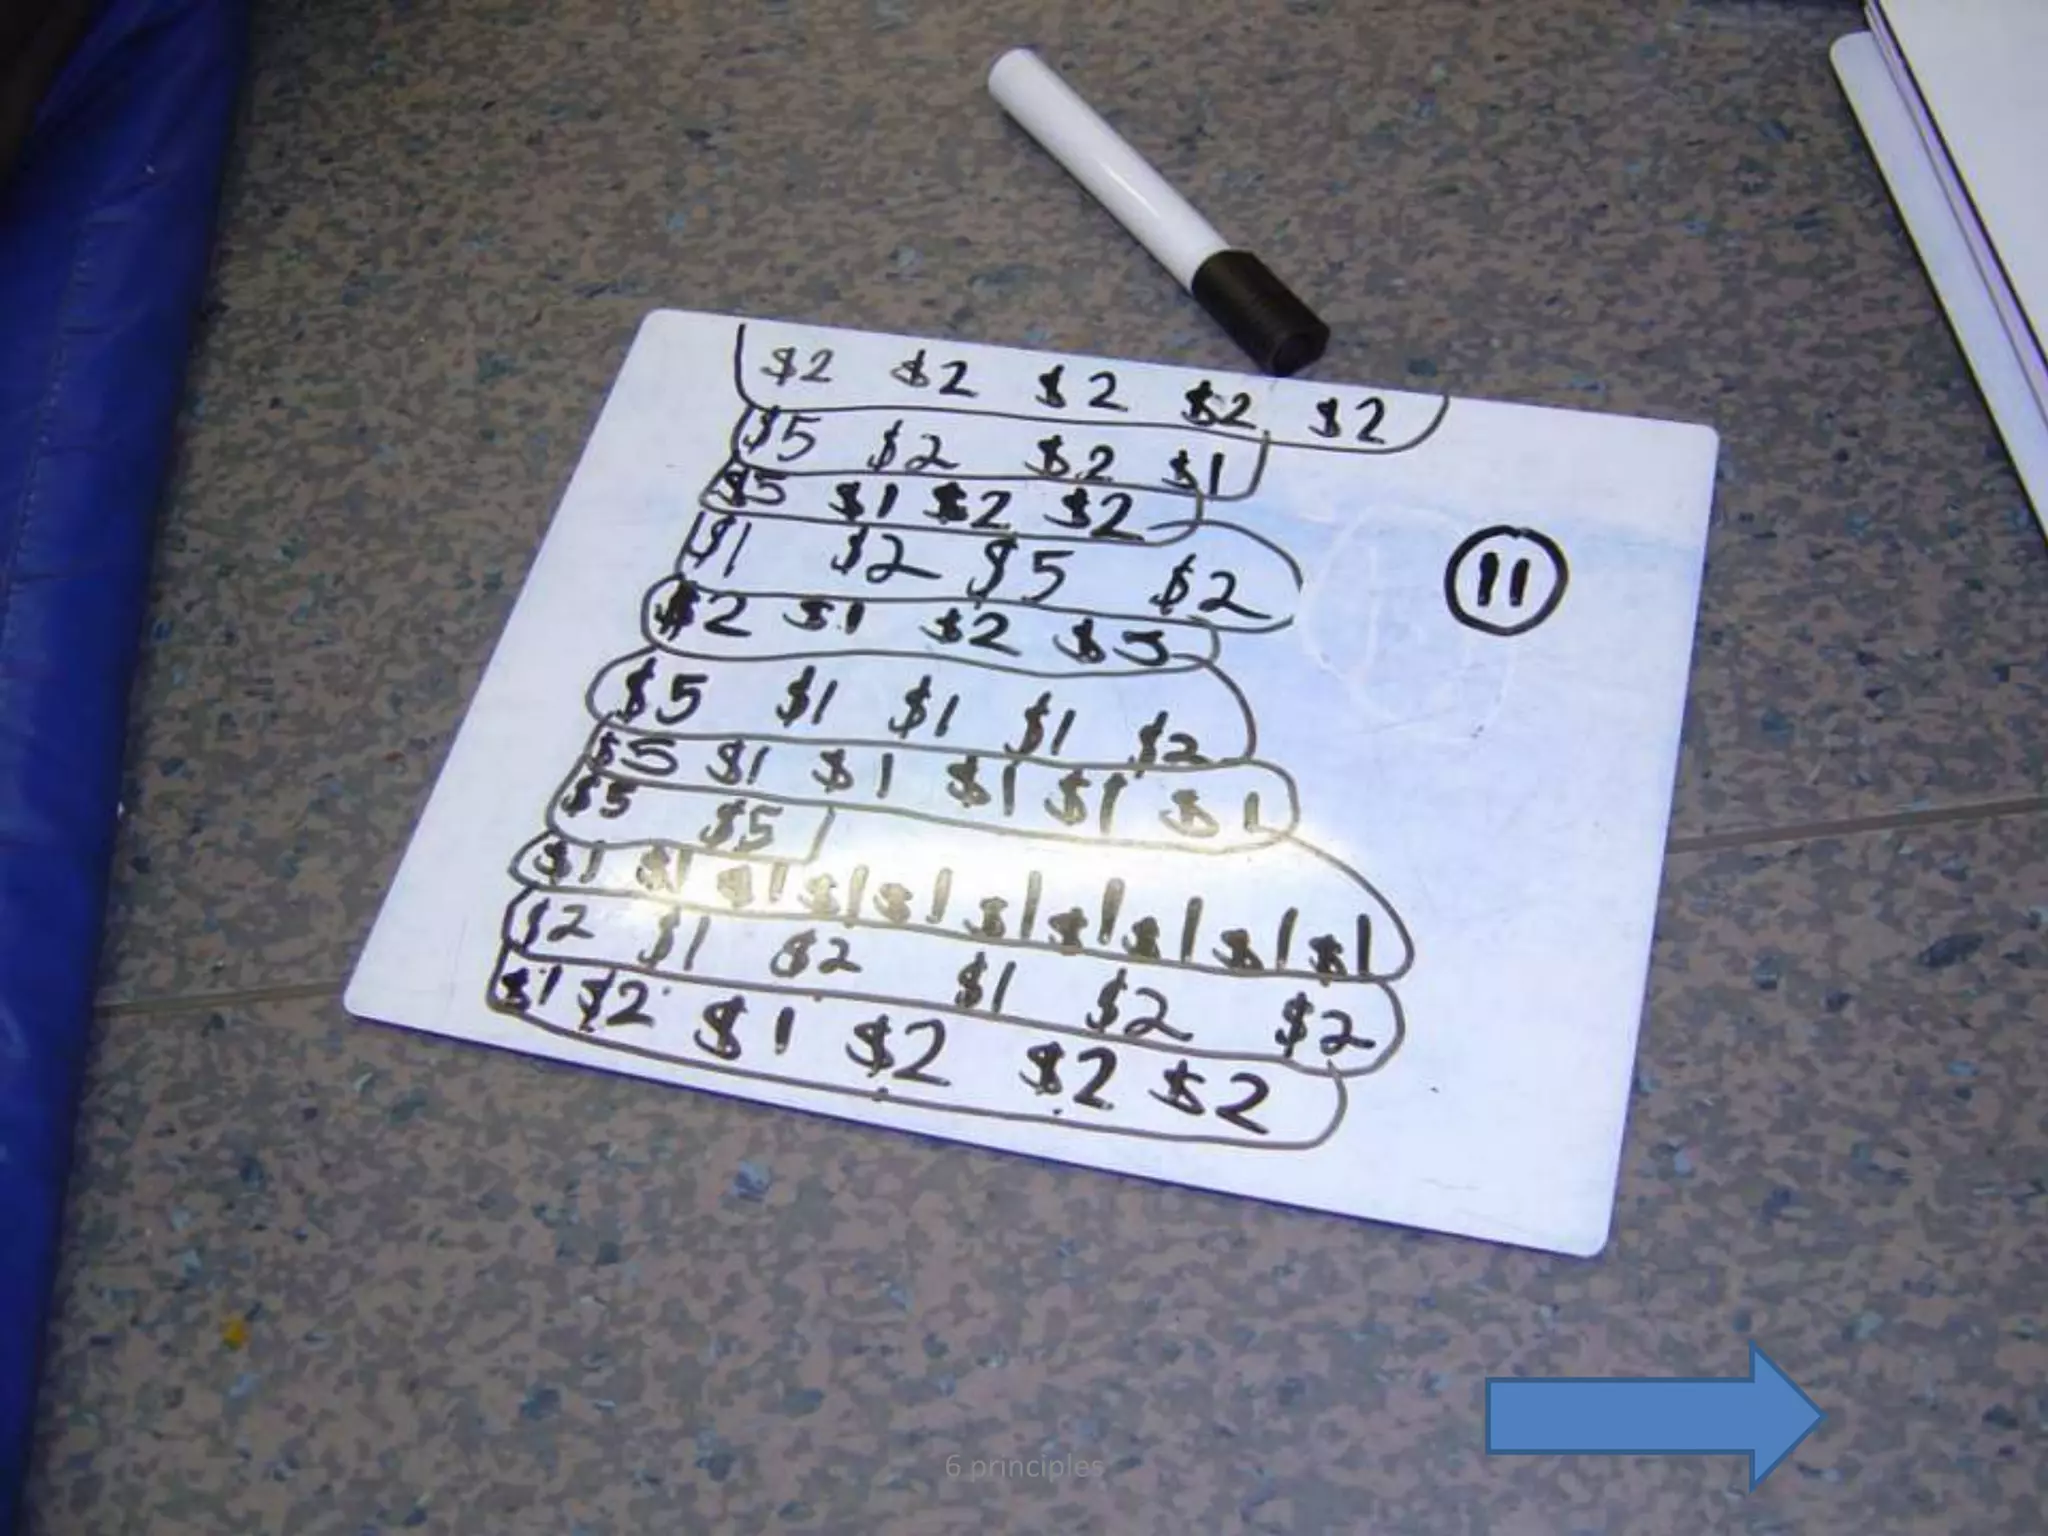 $2 $2 $2 $2 $2
$5 $2 $2 $1
$5 $1 $2 $2
$1 $2 $5 $2
$2 $1 $2 $5
$5 $1 $1 $1 $2
$5 $1 $1 $1 $1 $1
$5 $5
$1 $1 $1 $1 $1 $1 $1 $1 $1 $1
$2 $1 $2 $1 $2 $2
$1 $2 $1 $2 $2 $2
11
6 principles